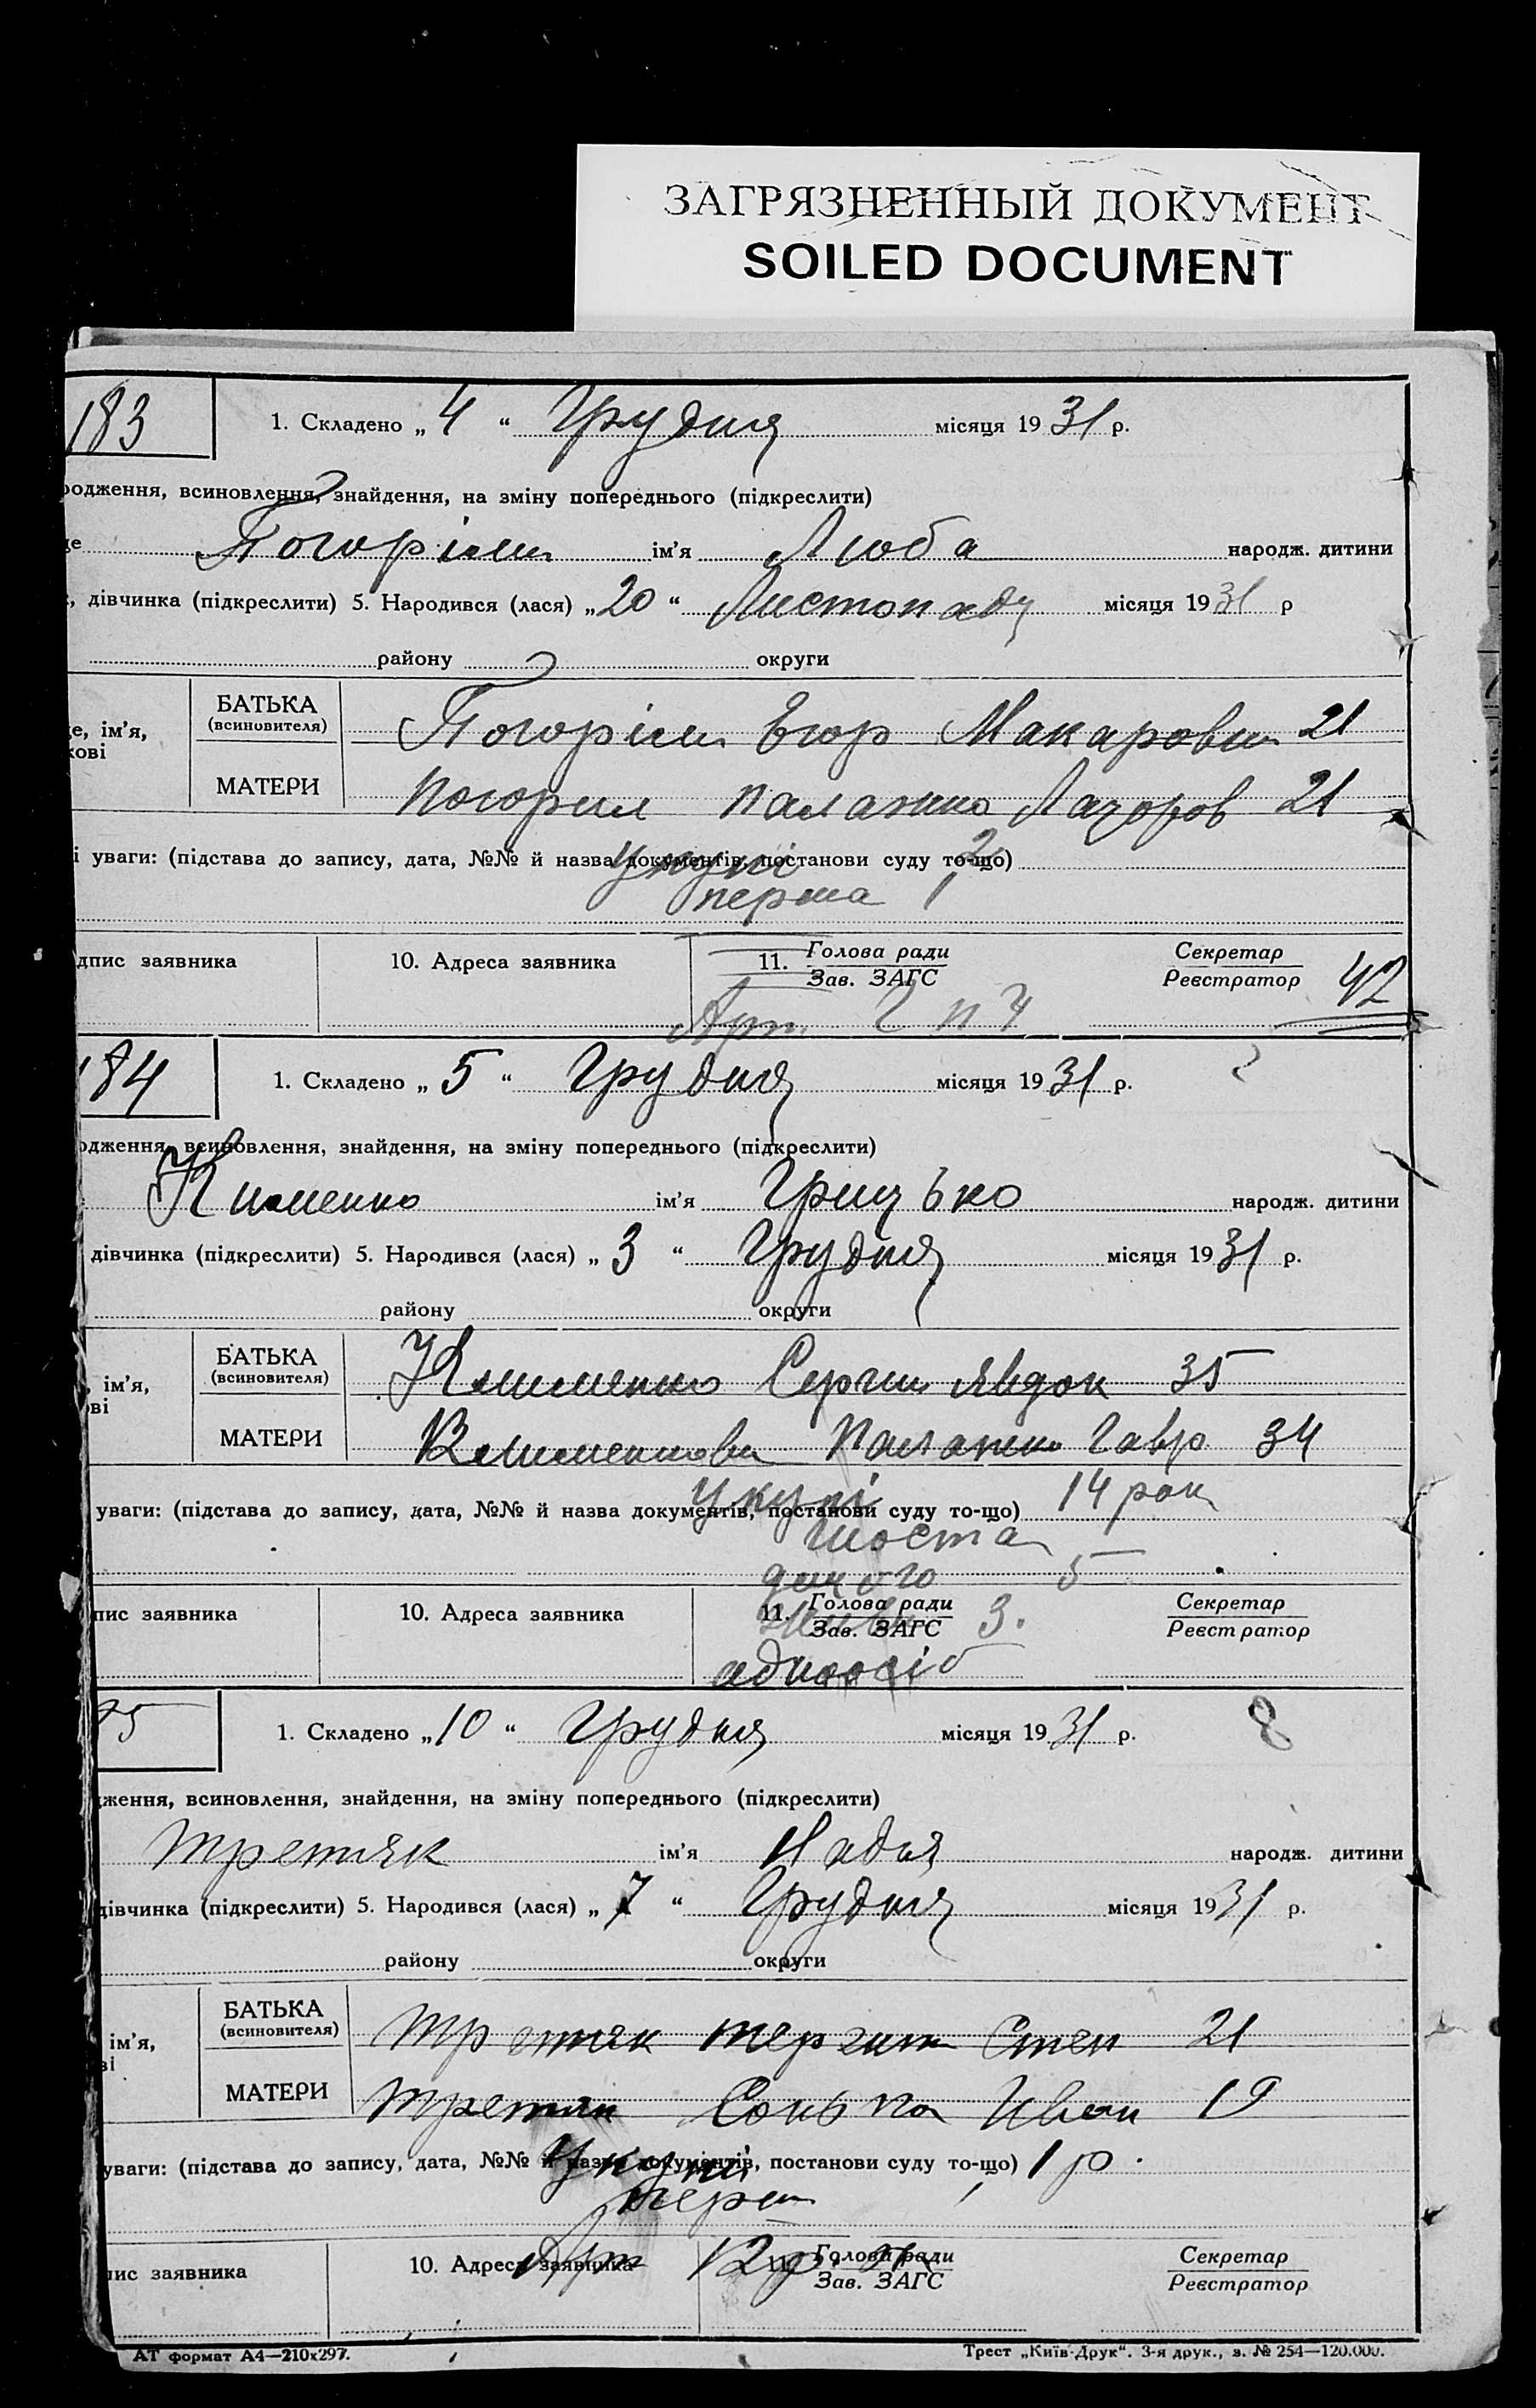 ЗАГРЯЗНЕННЫЙ ДОКУМЕНТ
SOILED DOCUMENT
183
1. Складено „ 4 “ Грудня місяця 19 31 р.
родження, всиновлення, знайдення, на зміну попереднього (підкреслити)
ім'я Люба народж. дитини
дівчинка (підкреслити) 5. Народився (лася) „ 20 “ Листопаду місяця 19 31 р
району округи
е, ім'я,
кові
БАТЬКА
(всиновителя)
Егор Макарович 21
МАТЕРИ
21
і уваги: (підстава до запису, дата, №№ й назва документів, постанови суду то-що) 2
Укупі
перша 1
дпис заявника 10. Адреса заявника 11. Голова ради
Зав. ЗАГС
Секретар
Реєстратор
42
184
1. Складено „ 5 “ Грудня місяця 19 31 р.
одження, всиновлення, знайдення, на зміну попереднього (підкреслити)
ім'я Грицько народж. дитини
дівчинка (підкреслити) 5. Народився (лася) „ 3 “ Грудня місяця 19 31 р.
району округи
, ім'я,
ві
БАТЬКА
(всиновителя)
Клименко 35
МАТЕРИ
34
уваги: (підстава до запису, дата, №№ й назва документів, постанови суду то-що) 14 рок
Укупі
шоста
5
пис заявника 10. Адреса заявника 11. Голова ради
Зав. ЗАГС
3.
Секретар
Реєстратор
одноосіб
85
1. Складено „ 10 “ Грудня місяця 19 31 р. 8
дження, всиновлення, знайдення, на зміну попереднього (підкреслити)
Третяк ім'я Надя народж. дитини
дівчинка (підкреслити) 5. Народився (лася) „ 7 “ Грудня місяця 19 31 р.
району округи
ім'я,
ві
БАТЬКА
(всиновителя)
Третяк Степ 21
МАТЕРИ
Третяк Сонька Иван 19
уваги: (підстава до запису, дата, №№ й назва документів, постанови суду то-що) 1 р.
Укупі
пис заявника 10. Адреса заявника 11. Голова ради
Зав. ЗАГС
Секретар
Реєстратор
АТ формат А4—210х297.
Трест „Київ-Друк“. 3-я друк., з. № 254—120.000.